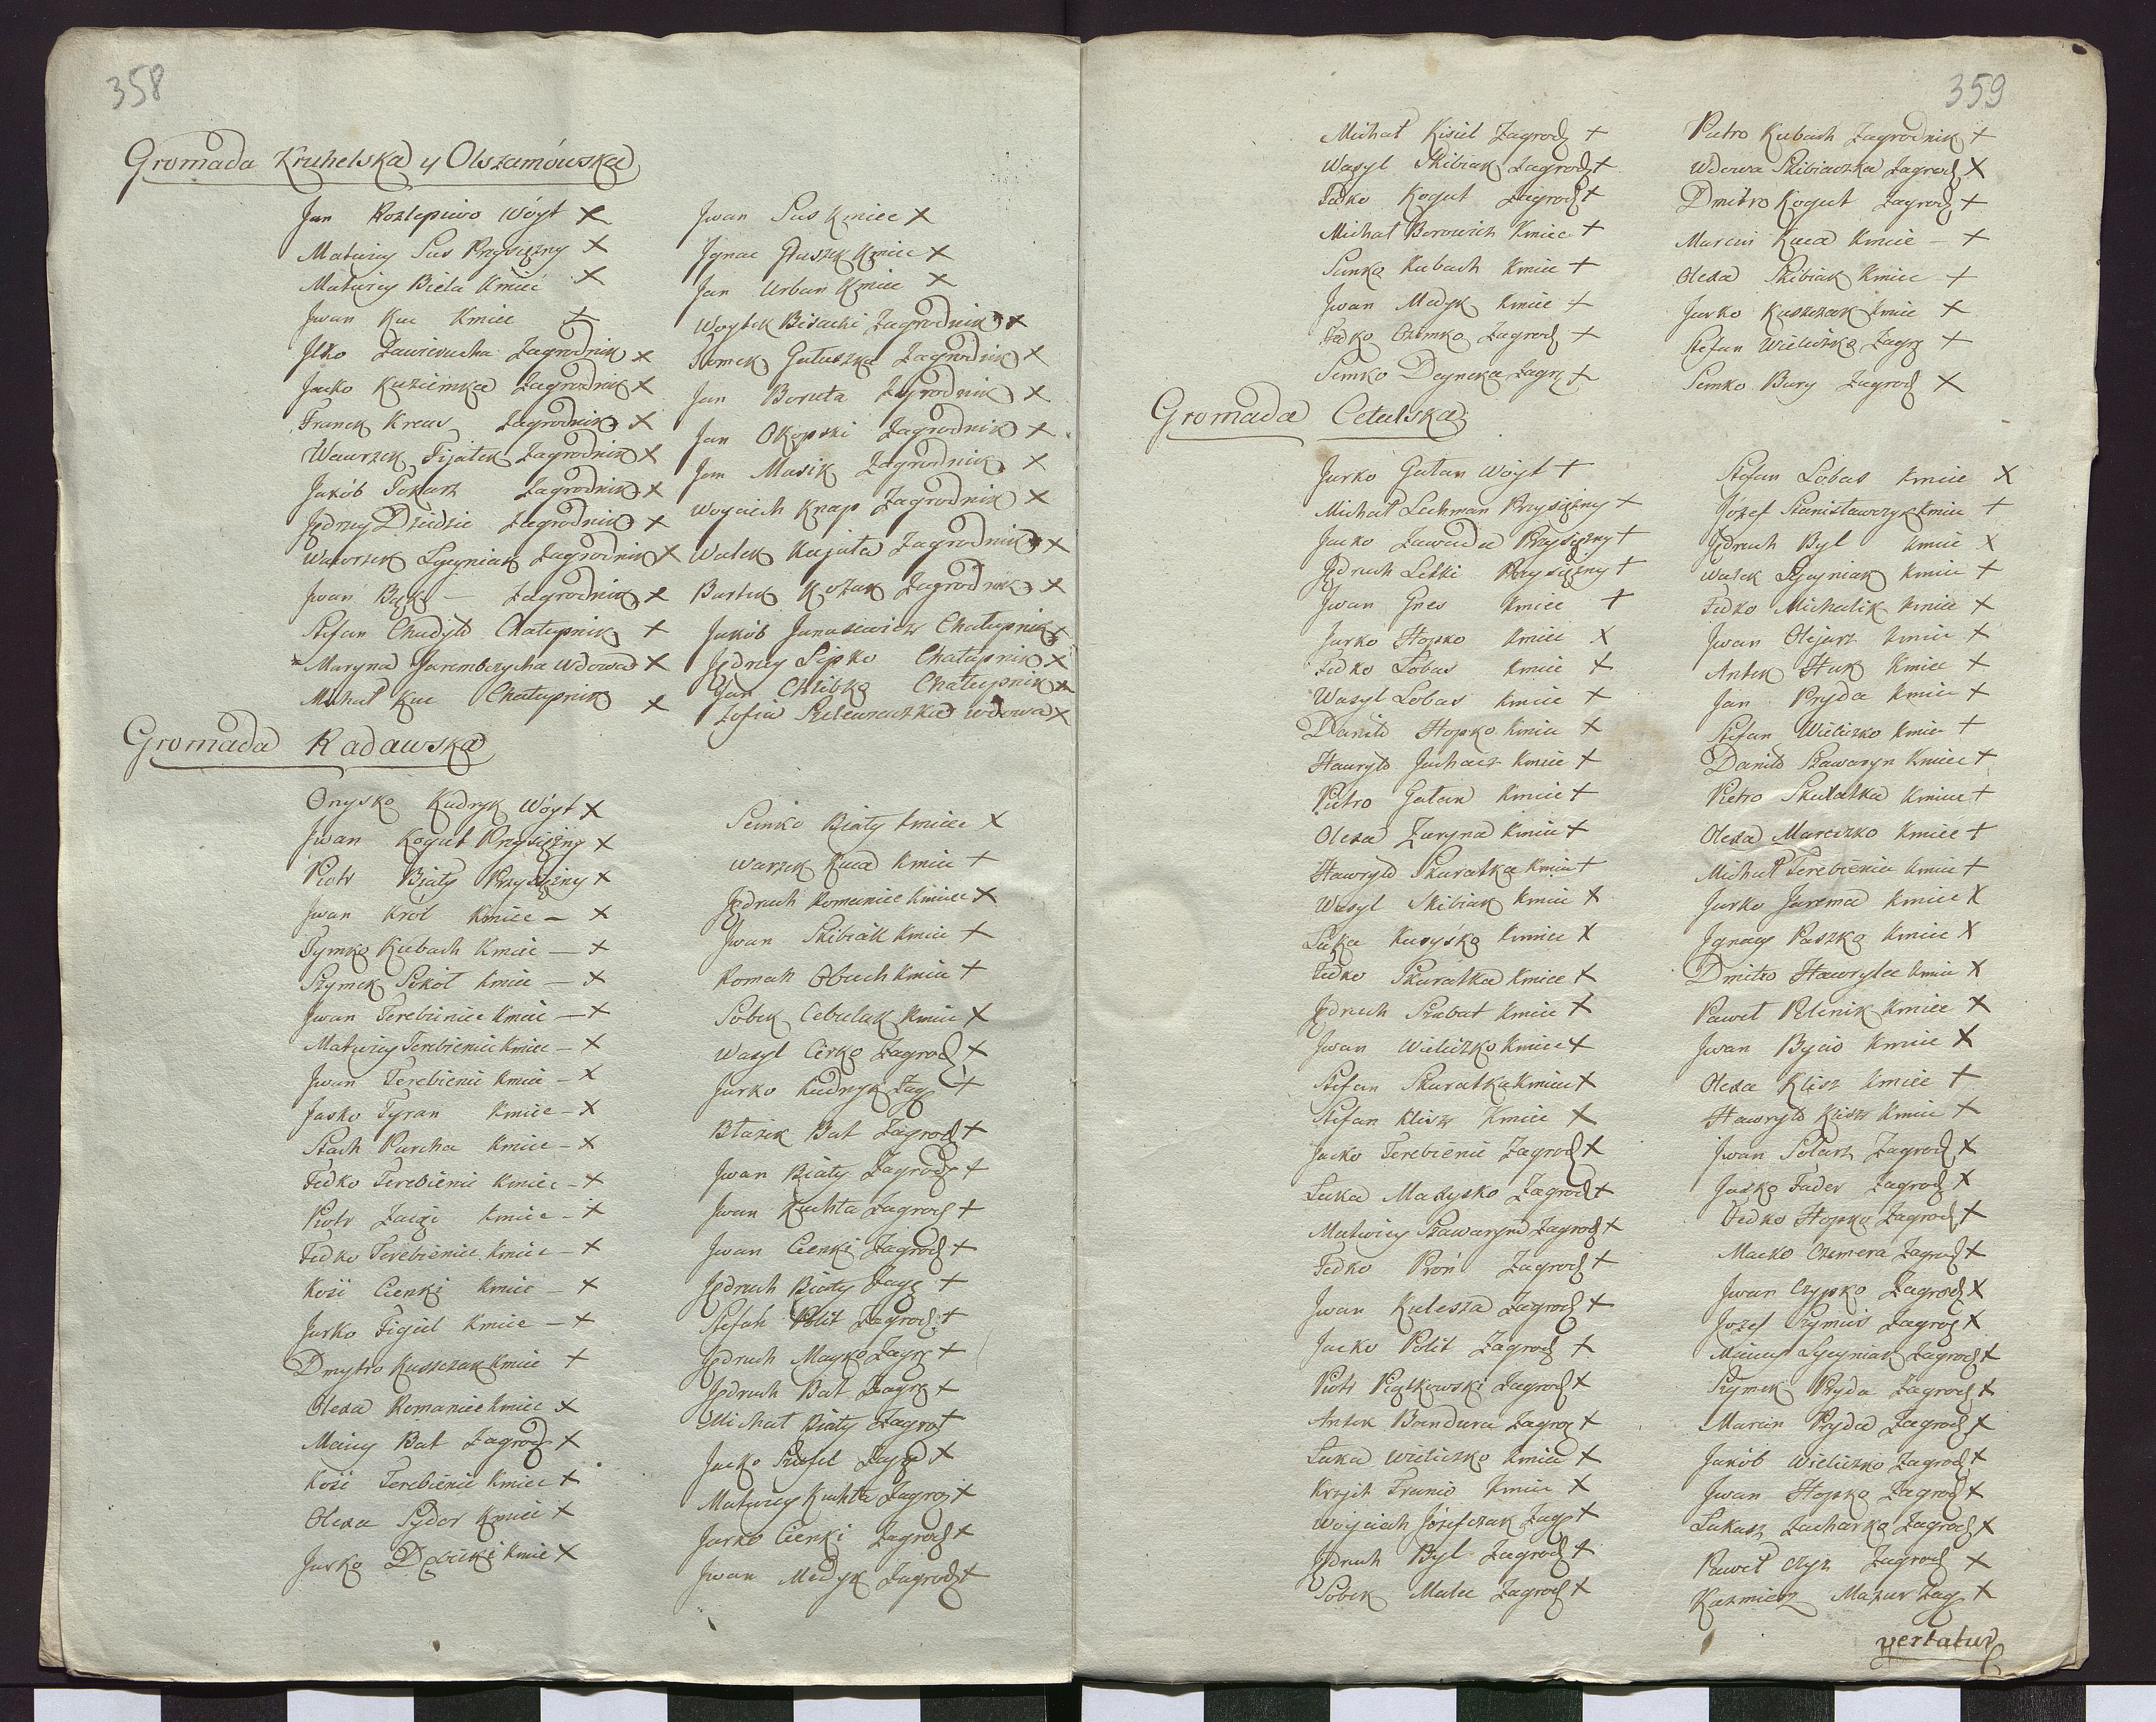 358
Gromada Kruhelska y Olszamówska
Jan Rozlepiwo Wóyt x
Matwiey Sus Przysiężny x
Matwiey Biela Kmieć x
Jwan Kuc Kmiec +
Jłko Zawierucha Zagrodnik x
Jacko Kuziemka Zagrodnik x
Franek Kreus Zagrodnik x
Wawrzek Fijałek Zagrodnik x
Jakób Tokarz Zagrodnik x
Jędrzey Dziedzic Zagrodnik x
Wawrzek Szczyniak Zagrodnik x
Jwan Bęk — Zagrodnik x
Stefan Chudyło Chałupnik +
Maryna Jarembzycha Wdowa x
Michał Kuc Chałupnik x
Jwan Sus Kmiec x
Jgnac Głuszk Kmiec x
Jan Urban Kmiec x
Woytek Bisacki Zagrodnik x
Romek Gałuszka Zagrodnik x
Jan Boruta Zagrodnik x
Jan Okopski Zagrodnik +
Jan Musik Zagrodnik x
Woyciech Knap Zagrodnik x
Walek Kajata Zagrodnik x
Bartek Kozak Zagrodnik x
Jakób Janasiewicz Chałupnik x
Jędrzey Sipko Chałupnik x
Jan Chlibko Chałupnik x
Zofia wdowa x
Gromada Radawska
Onysko Kudryk Wóyt x
Jwan Kogut Przysiężny x
Piotr Biały Przysiężny x
Jwan Król Kmiec — x
Tymko Kubach Kmiec — x
Szymek Sikoł Kmiec — x
Jwan Terebieniec Kmiec — x
Matwiey Terebieniec Kmiec — x
Jwan Terebieniec Kmiec — x
Jasko Tyran Kmiec — x
Stach Purcha Kmiec — x
Fedko Terebieniec Kmiec — x
Piotr Zaigi Kmiec — x
Fedko Terebieniec Kmiec — x
Kość Cienki Kmiec — x
Jurko Figiel Kmiec — x
Dmytro Kuszczak Kmiec +
Olexa Romaniec Kmiec x
Maciey Bat Zagrod x
Kość Terebieniec Kmiec +
Olexa Sydor Kmieć x
Jurko Dębicki Kmiec x
Semko Biały Kmiec x
Warzek Kuca Kmiec +
Jędruch Romaniec Kmiec x
Jwan Skibiak Kmiec +
Romach Obuch Kmiec +
Sobek Cebulak Kmiec x
Wasyl Cirko Zagrod x
Jurko Kudryk Zag +
Błazik Bat Zagrod +
Jwan Biały Zagrod +
Jwan Kuchta Zagrod +
Jwan Cienki Zagrod +
Jędruch Biały Zagr +
Stefan Polit Zagrod +
Jędruch Mayko Zagr +
Jędruch Bat Zagr +
Michał Biały Zagro +
Jacko Szufel Zagr x
Matwiey Kuchta Zagro +
Jurko Cienki Zagrod +
Jwan Medyk Zagrod +
359
Michał Kisiel Zagrod +
Wasyl Skibiak Zagrod +
Fedko Kogut Zagrod +
Michał Borowicz Kmiec +
Semko Kubach Kmiec +
Jwan Medyk Kmiec +
Fedko Czomko Zagrod +
Semko Deyneka Zagr +
Pietro Kubach Zagrodnik +
Wdowa Skibiaczka Zagrod x
Dmitro Kogut Zagrod +
Marcin Kuca Kmiec — +
Olexa Skibiak Kmiec +
Jurko Kuszczak Kmiec x
Stefan Wieliczko Zagr +
Semko Bury Zagrod x
Gromada Cetulska
Jurko Gałan Wóyt +
Michał Lechman Przysiężny +
Jacko Zawada Przysiężny +
Jędruch Letki Przysiężny +
Jwan Gnes Kmiec +
Jurko Hopko Kmiec x
Fedko Lobas Kmiec +
Wasyl Lobas Kmiec +
Daniło Hopko Kmiec x
Hawryło Juchacz Kmiec +
Pietro Gałan Kmiec +
Olexa Zaryna Kmiec +
Hawryło Skarałka Kmiec +
Wasyl Skibiak Kmiec x
Luka Kusysko Kmiec x
Fedko Skarałka Kmiec x
Jędruch Szubat Kmiec x
Jwan Wieliczko Kmiec x
Stefan Skarałka Kmiec x
Stefan Klisz Kmiec x
Jacko Terebieniec Zagrod x
Luka Mazysko Zagrod +
Matwiey Szawaryn Zagrod +
Fedko Proń Zagrod +
Jwan Kulesza Zagrod +
Jacko Polit Zagrod +
Piotr Piątkowski Zagrod +
Antek Bandura Zagrog +
Luka Wieliczko Kmiec x
Krzych Franio Kmiec x
Woyciech Józefczak Zag +
Jędruch Byl Zagrod +
Sobek Malec Zagrod +
Stefan Lobas Kmiec x
Józef Stanisławczyk Kmiec +
Jędruch Byl Kmiec x
Walek Szczyniak Kmiec +
Fedko Michalik Kmiec x
Jwan Olejarz Kmiec +
Antek Huk Kmiec +
Jan Pryda Kmiec +
Stefan Wieliczko Kmiec +
Daniło Szawaryn Kmiec +
Pietro Skarałka Kmiec +
Olexa Marczko Kmiec +
Michał Terebieniec Kmiec +
Jurko Jarema Kmiec x
Jgnacy Paszko Kmiec x
Dmitro Hawrylec Kmiec x
Paweł Pelinik Kmiec x
Jwan Bycio Kmiec x
Olexa Klisz Kmiec +
Hawryło Klisz Kmiec +
Jwan Polarz Zagrod x
Jasko Fader Zagrod x
Fedko Hopko Zagrod x
Macko Czemera Zagrod +
Jwan Czypko Zagrod x
Jozef Szymuś Zagrog x
Maciey Szczyniak Zagrod x
Szymek Pryda Zagrod x
Marcin Pryda Zagrod x
Jakób Wieliczko Zagrod x
Jwan Hopko Zagrod x
Lukasz Zacharko Zagrod x
Paweł Czyz Zagrod x
Kazmierz Mazur Zag x
vertatur